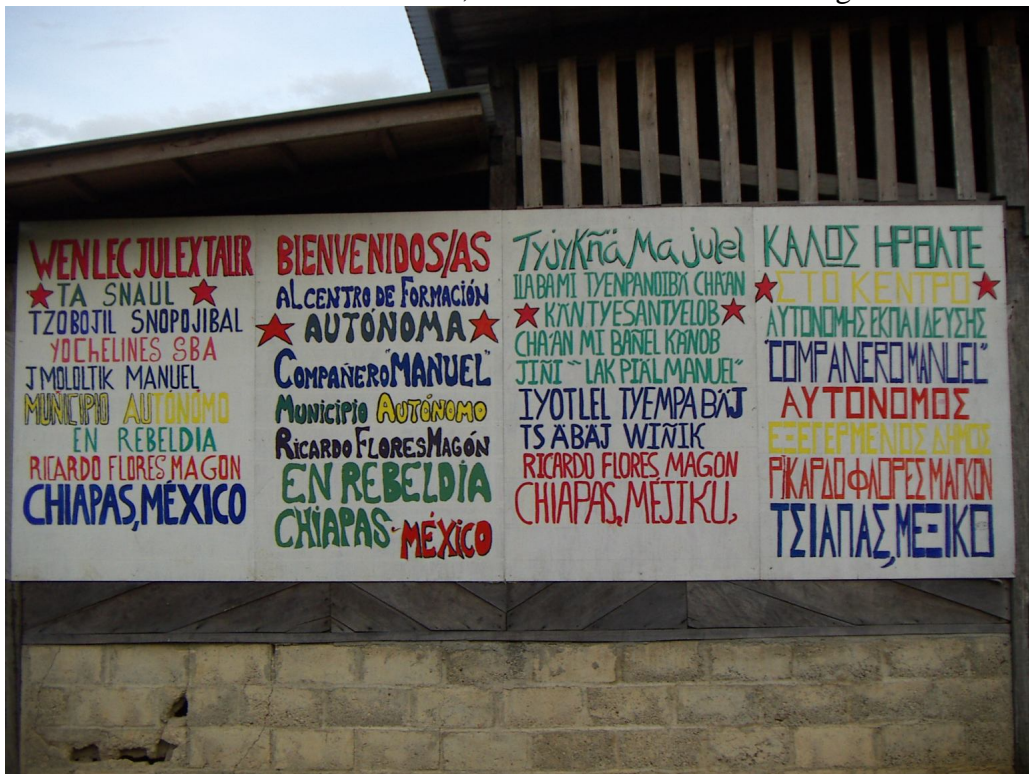 WEN LEC JULEX TALIR
TA SNAUL
TZOBOJIL SNOPOJIBAL
YOCHELINES SBA
J MOLOLTIK MANUEL
MUNICIPIO AUTONOMO
EN REBELDIA
RICARDO FLORES MAGON
CHIAPAS, MÉXICO
BIENVENIDOS/AS
AL CENTRO DE FORMACIÓN
AUTÓNOMA
COMPAÑERO "MANUEL"
MUNICIPIO AUTÓNOMO
RICARDO FLORES MAGÓN
EN REBELDÍA
CHIAPAS - MÉXICO
Tyjykñä Ma julel
TYENPANOIBÄ CHA'AN
KÄNTYESANTYELOB
CHA'AN MI BAÑEL KANOB
JIÑI "LAK PIÄL MANUEL"
IYOTLEL TYEMPA BÄJ
TS ÄBÄJ WIÑIK
RICARDO FLORES MAGON
CHIAPAS, MEJIKU,
ΚΑΛΩΣ ΗΡΘΑΤΕ
ΣΤΟ ΚΕΝΤΡΟ
ΑΥΤΟΝΟΜΗΣ ΕΚΠΑΙΔΕΥΣΗΣ
"COMPANERO MANUEL"
ΑΥΤΟΝΟΜΟΣ
ΕΞΕΓΕΡΜΕΝΟΣ ΔΗΜΟΣ
ΡΙΚΑΡΔΟ ΦΛΟΡΕΣ ΜΑΓΚΟΝ
ΤΣΙΑΠΑΣ, ΜΕΞΙΚΟ